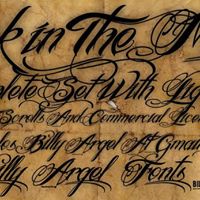 in The
plete Set With Lig
Scrolls And Commercial Lice
Billy Argel At Gmai
illy Argel Fonts